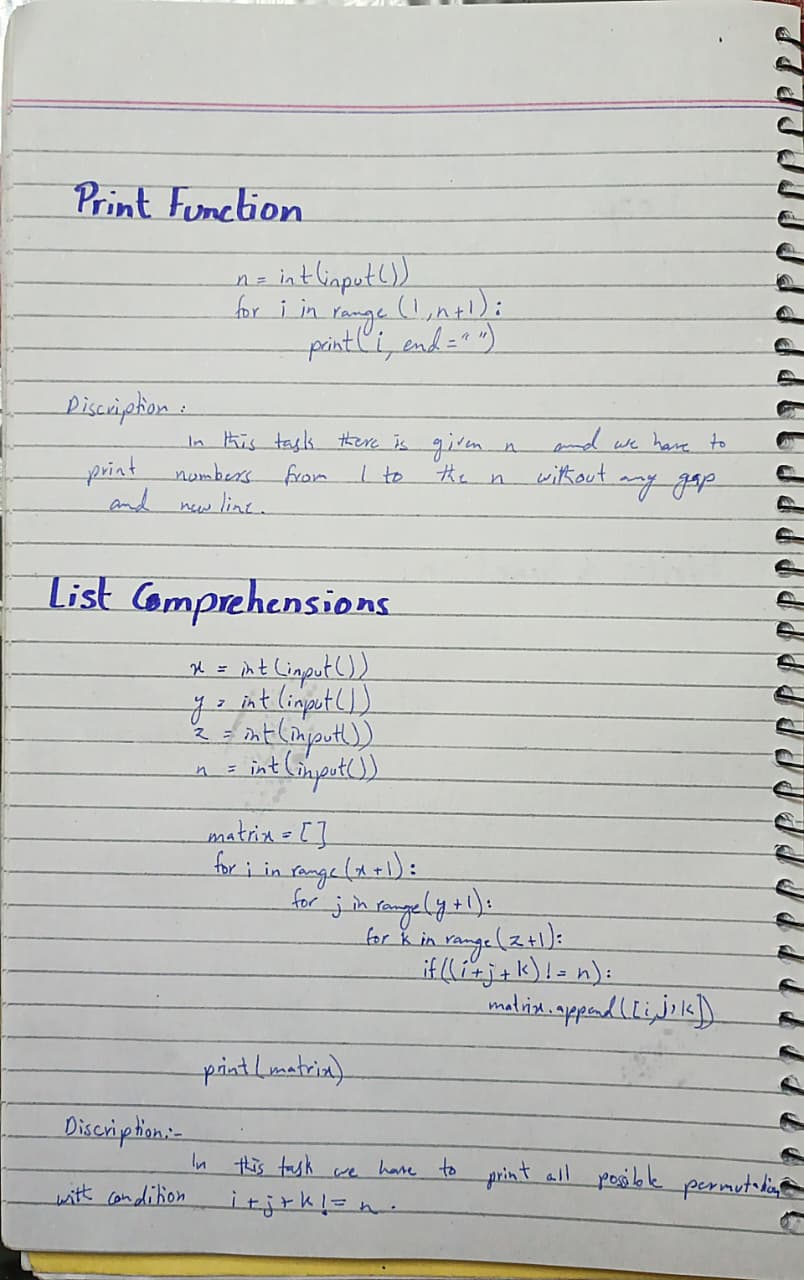 Print Function
n = int(input())
for i in range (1,n+1):
print(i, end="")
Discription :
In this task there is given n and we have to
print numbers from 1 to the n without any gap
and new line.
List Comprehensions
x = int(input())
y = int(input())
z = int(input())
n = int(input())
matrix = []
for i in range(x+1):
for j in range(y+1):
for k in range(z+1):
if((i+j+k) != n):
matrix.append([i,j,k])
print(matrix)
Discription:-
In this task we have to print all possible permutation
with condition i+j+k != n.